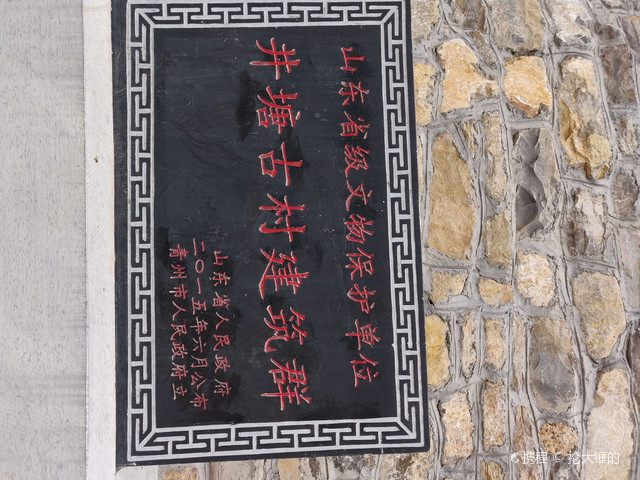 山东省级文物保护单位
井塘古村建筑群
山东省人民政府
二〇一五年六月公布
青州市人民政府立
携程 @ 抡大锤的